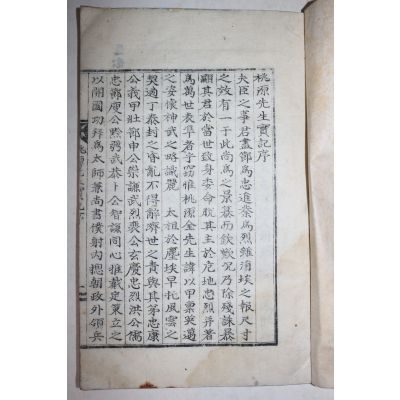 桃源先生實記序
夫臣之事君盡爲忠進業爲烈雖涓埃之報尺寸
之效有一于此尚爲之景慕而欽歎況乃除殘誅暴
顯其君於當世致身委命脫其主於危地忠烈幷著
爲萬世表準者乎竊惟桃源金先生諱以甲稟英邁
之姿懷神武之略識麗 太祖於塵埃早托風雲之
契適丁泰封之昏亂不得辭濟世之責與其弟忠康
公義甲壯節申公崇謙武烈裴公玄慶忠烈洪公儒
忠節庾公黔弼武恭卜公智謙同心推戴定策立之
以開國功拜爲太師兼尚書僕射內摠朝政外領兵